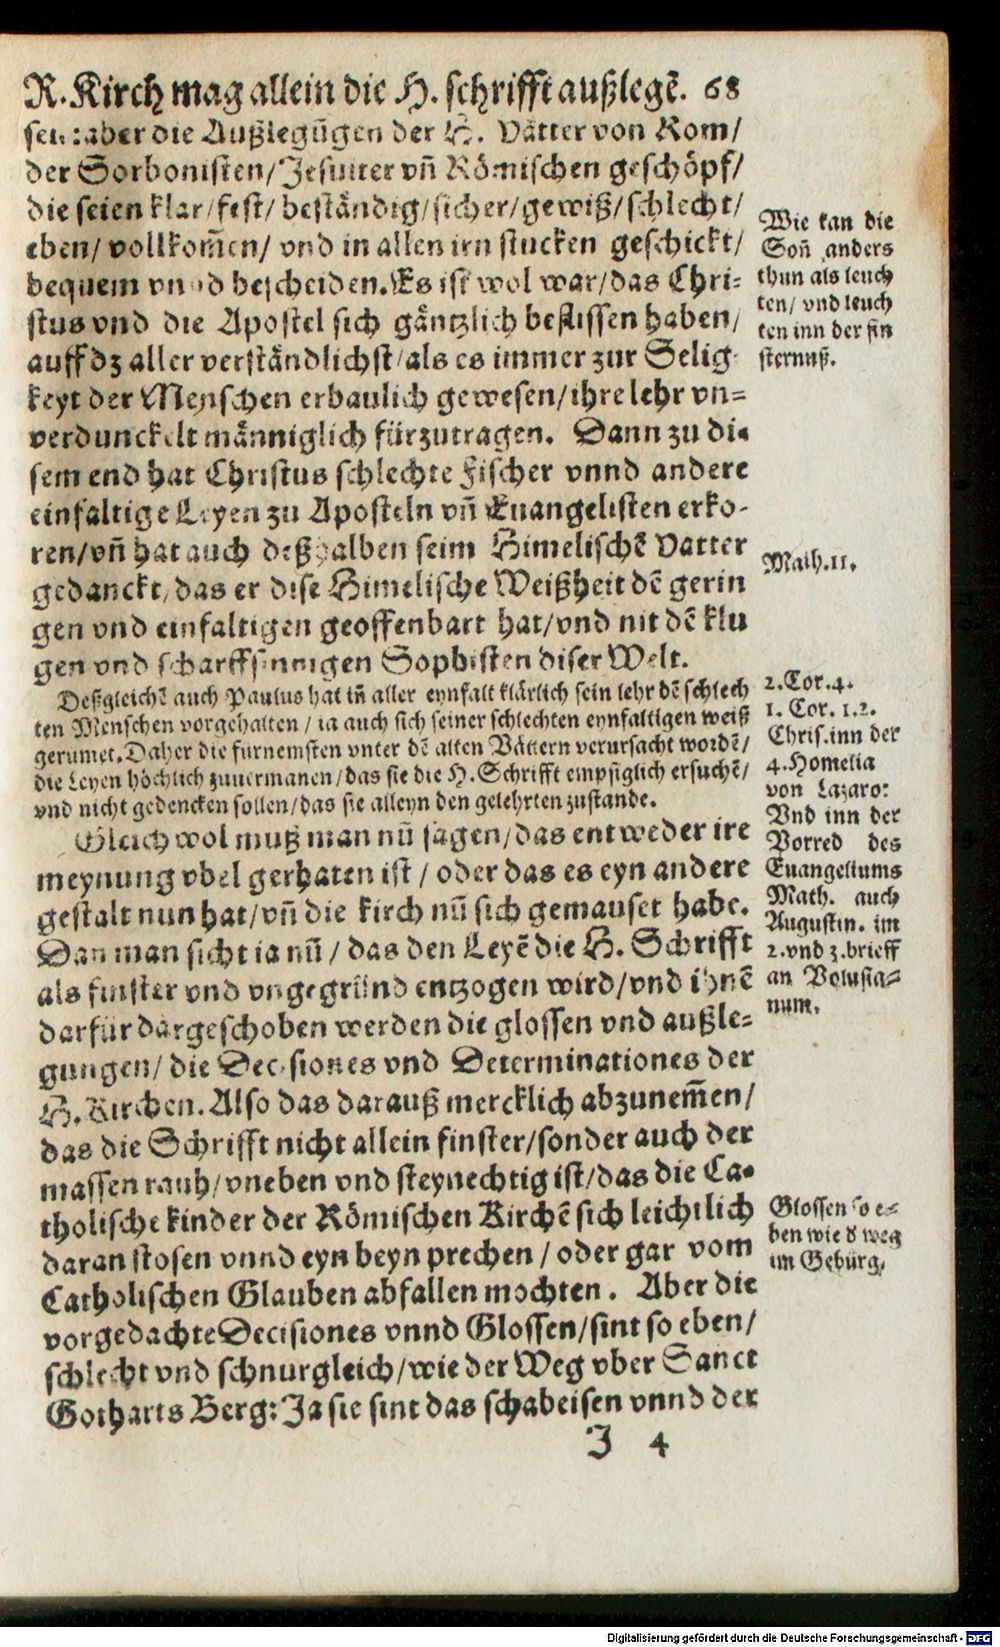 R. Kirch mag allein die H. schrifft außlegẽ. 68
sei: aber die Außlegũgen der H. Vätter von Rom/
der Sorbonisten/ Jesuiter vñ Römischen geschöpf/
die seien klar/ fest/ beständig/ sicher/ gewiß/ schlecht/
eben/ vollkom̃en/ vnd in allen irn stucken geschickt/
bequem vnnd bescheiden. Es ist wol war/ das Chri-
stus vnd die Apostel sich gäntzlich beflissen haben/
auff dz aller verständlichst/ als es immer zur Selig-
keyt der Menschen erbaulich gewesen/ ihre lehr vn-
verdunckelt männiglich fürzutragen. Dann zu di-
sem end hat Christus schlechte Fischer vnnd andere
einfaltige Leyen zu Aposteln vñ Euangelisten erko-
ren/ vñ hat auch deßhalben seim Himelischẽ Vatter
gedanckt, das er dise Himelische Weißheit dẽ gerin
gen vnd einfaltigen geoffenbart hat/ vnd nit dẽ klu
gen vnd scharffsinnigen Sophisten diser Welt.
Deßgleichẽ auch Paulus hat iñ aller eynfalt klärlich sein lehr dẽ schlech
ten Menschen vorgehalten/ ia auch sich seiner schlechten eynfaltigen weiß
gerümet. Daher die fürnemsten vnter dẽ alten Vättern verursacht wordẽ/
die Leyen höchlich zuuermanen/ das sie die H. Schrifft empsiglich ersuchẽ/
vnd nicht gedencken sollen/ das sie alleyn den gelehrten zustande.
Gleich wol muß man nũ sagen/ das entweder ire
meynung vbel gerhaten ist/ oder das es eyn andere
gestalt nun hat/ vñ die kirch nũ sich gemauset habe.
Dan man sicht ia nũ/ das den Leyẽ die H. Schrifft
als finster vnd vngegründ entzogen wird/ vnd ihnẽ
darfür dargeschoben werden die glossen vnd außle-
gungen/ die Decisiones vnd Determinationes der
H. Kirchen. Also das darauß mercklich abzunem̃en/
das die Schrifft nicht allein finster/ sonder auch der
massen rauh/ vneben vnd steynechtig ist/ das die Ca-
tholische kinder der Römischen Kirchẽ sich leichtlich
daran stosen vnnd eyn beyn prechen/ oder gar vom
Catholischen Glauben abfallen mochten. Aber die
vorgedachte Decisiones vnnd Glossen/ sint so eben/
schlecht vnd schnurgleich/ wie der Weg vber Sanct
Gotharts Berg: Ja sie sint das schabeisen vnnd der
J 4
Wie kan die
Soñ anders
thun als leuch
ten/ vnd leuch
ten inn der fin
sternuß.
Math. 11.
2. Cor. 4.
1. Cor. 1. 2.
Chris. inn der
4. Homelia
von Lazaro:
Vnd inn der
Vorred des
Euangeliums
Math. auch
Augustin. im
2. vnd 3. brieff
an Volusia-
num.
Glossen so e-
ben wie d weg
im Gebürg.
Digitalisierung gefördert durch die Deutsche Forschungsgemeinschaft - DFG